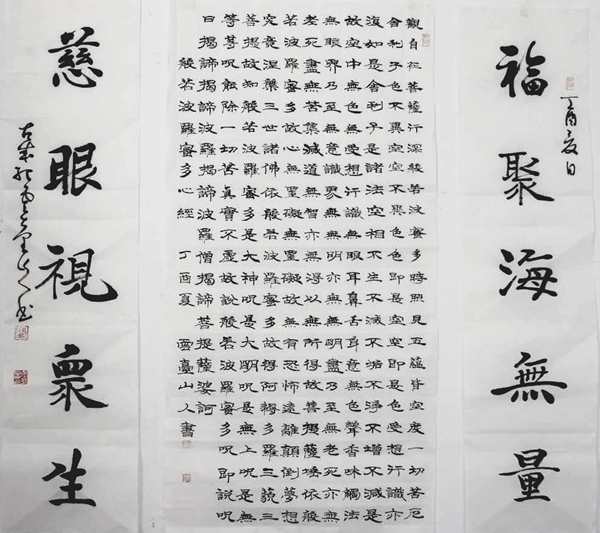 福聚海無量
丁酉夏日
觀自在菩薩行深般若波羅蜜多時照見五蘊皆空度一切苦厄
舍利子色不異空空不異色色即是空空即是色受想行識亦
復如是舍利子是諸法空相不生不滅不垢不淨不增不減是
故空中無色無受想行識無眼耳鼻舌身意無色聲香味觸法
無眼界乃至無意識界無無明亦無無明盡乃至無老死亦無
老死盡無苦集滅道無智亦無得以無所得故菩提薩埵依般
若波羅蜜多故心無罣礙無罣礙故無有恐怖遠離顛倒夢想
究竟涅槃三世諸佛依般若波羅蜜多故得阿耨多羅三藐三
菩提故知般若波羅蜜多是大神咒是大明咒是無上咒是無
等等咒能除一切苦真實不虛故說般若波羅蜜多咒即說咒
曰揭諦揭諦波羅揭諦波羅僧揭諦菩提薩婆訶
般若波羅蜜多心經 丁酉夏 雲臺山人書
慈眼視眾生